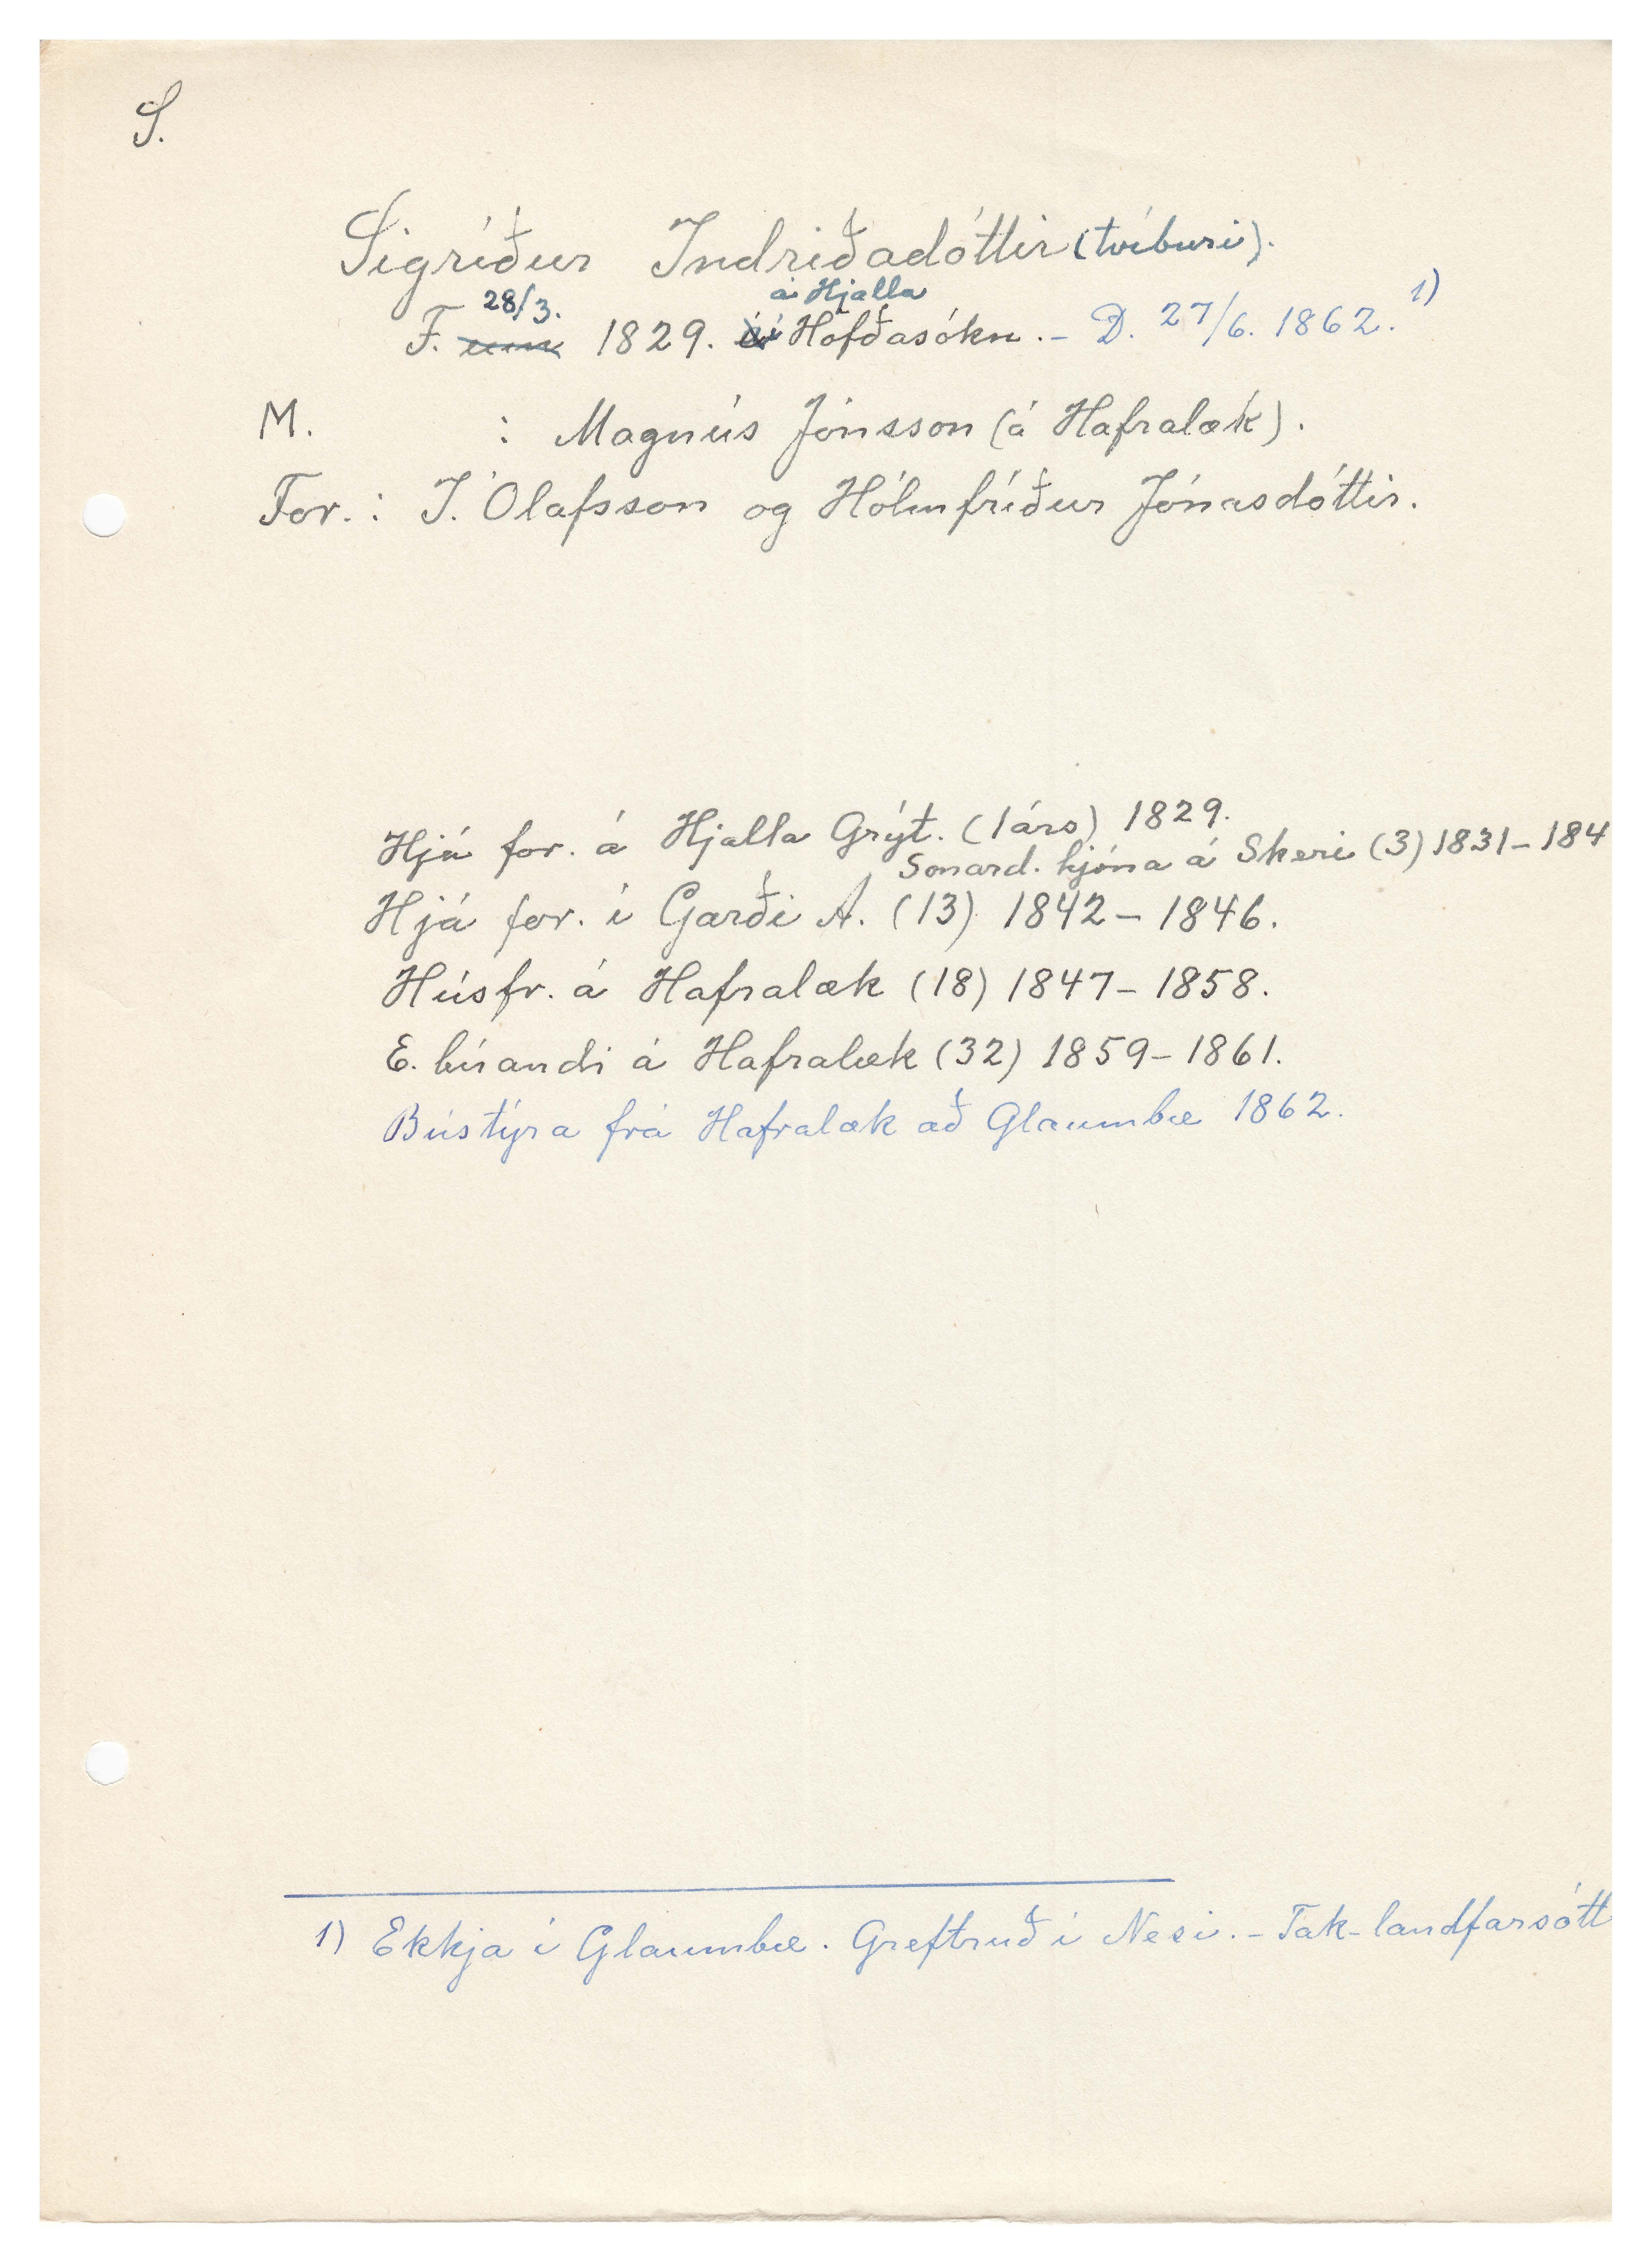 S.
Sigríður Indriðadóttir (tvíburi).
28/3. á Hjalla
F. um 1829. í Höfðasókn. - D. 27/6. 1862. 1)
M. : Magnús Jónsson (á Hafralæk).
For. : I. Ólafsson og Hólmfríður Jónasdóttir.
Hjá for. á Hjalla Grýt. (1árs) 1829.
Sonard. hjóna á Skeri (3) 1831-184
Hjá for. í Garði A. (13) 1842-1846.
Húsfr. á Hafralæk (18) 1847-1858.
E. búandi á Hafralæk (32) 1859-1861.
Bústýra frá Hafralæk að Glaumbæ 1862.
1) Ekkja í Glaumbæ. Greftruð í Nesi. - Tak-landfarsótt